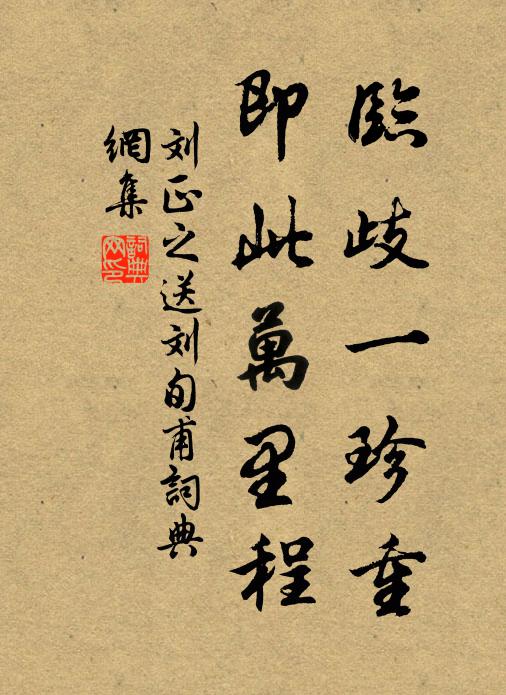 臨歧一珍重
即此萬里程
刘正之送刘旬甫詞典
網集
詞典
网印